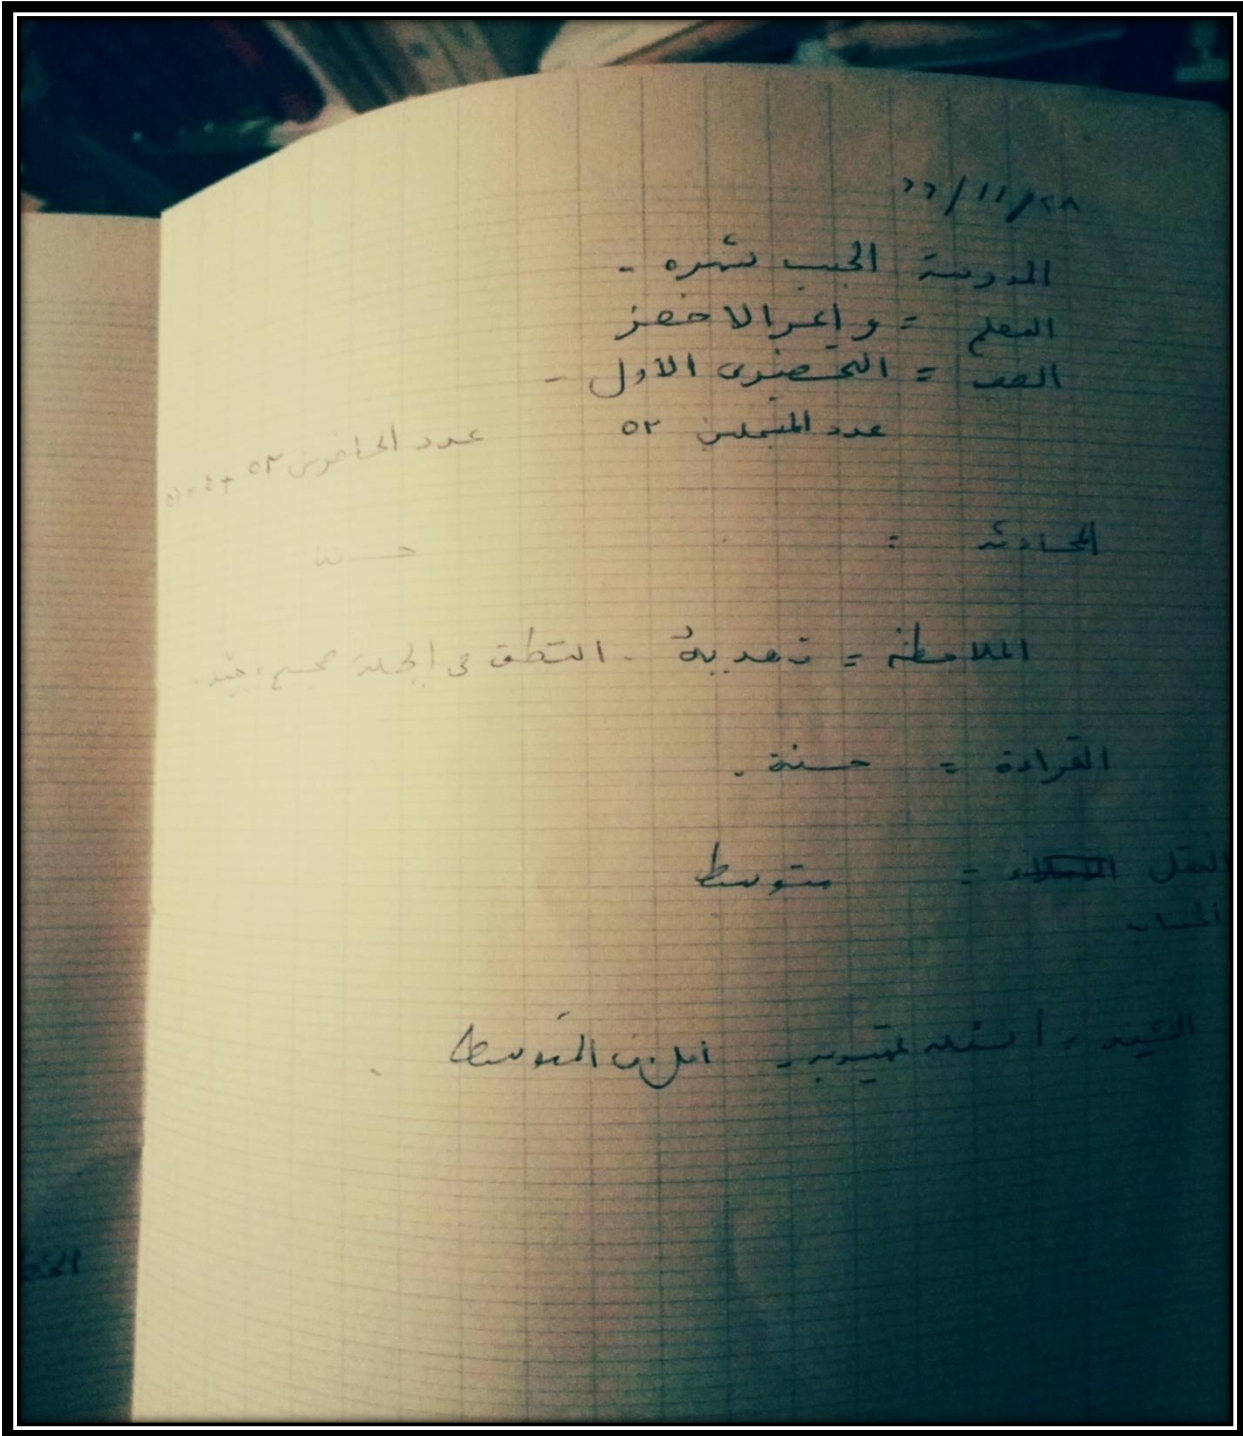 ٢٨/١١/٦٦
المدرسة الجيب شهره -
المعلم = واعر الاخضر
الصف = التحضيرى الأول -
عدد المتعلمين ٥٢ عدد الحاضرين ٥٢
المحادثه : حسنة
الملاحظة = تهديبة . النطق فى الجملة جيد .
القراءة = حسنة .
النقل = متوسط
الحساب
النشيد = أسئلة - اقل من المتوسط .